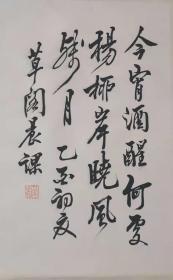 今宵酒醒何處
楊柳岸曉風
殘月 乙酉初夏
草閣晨課